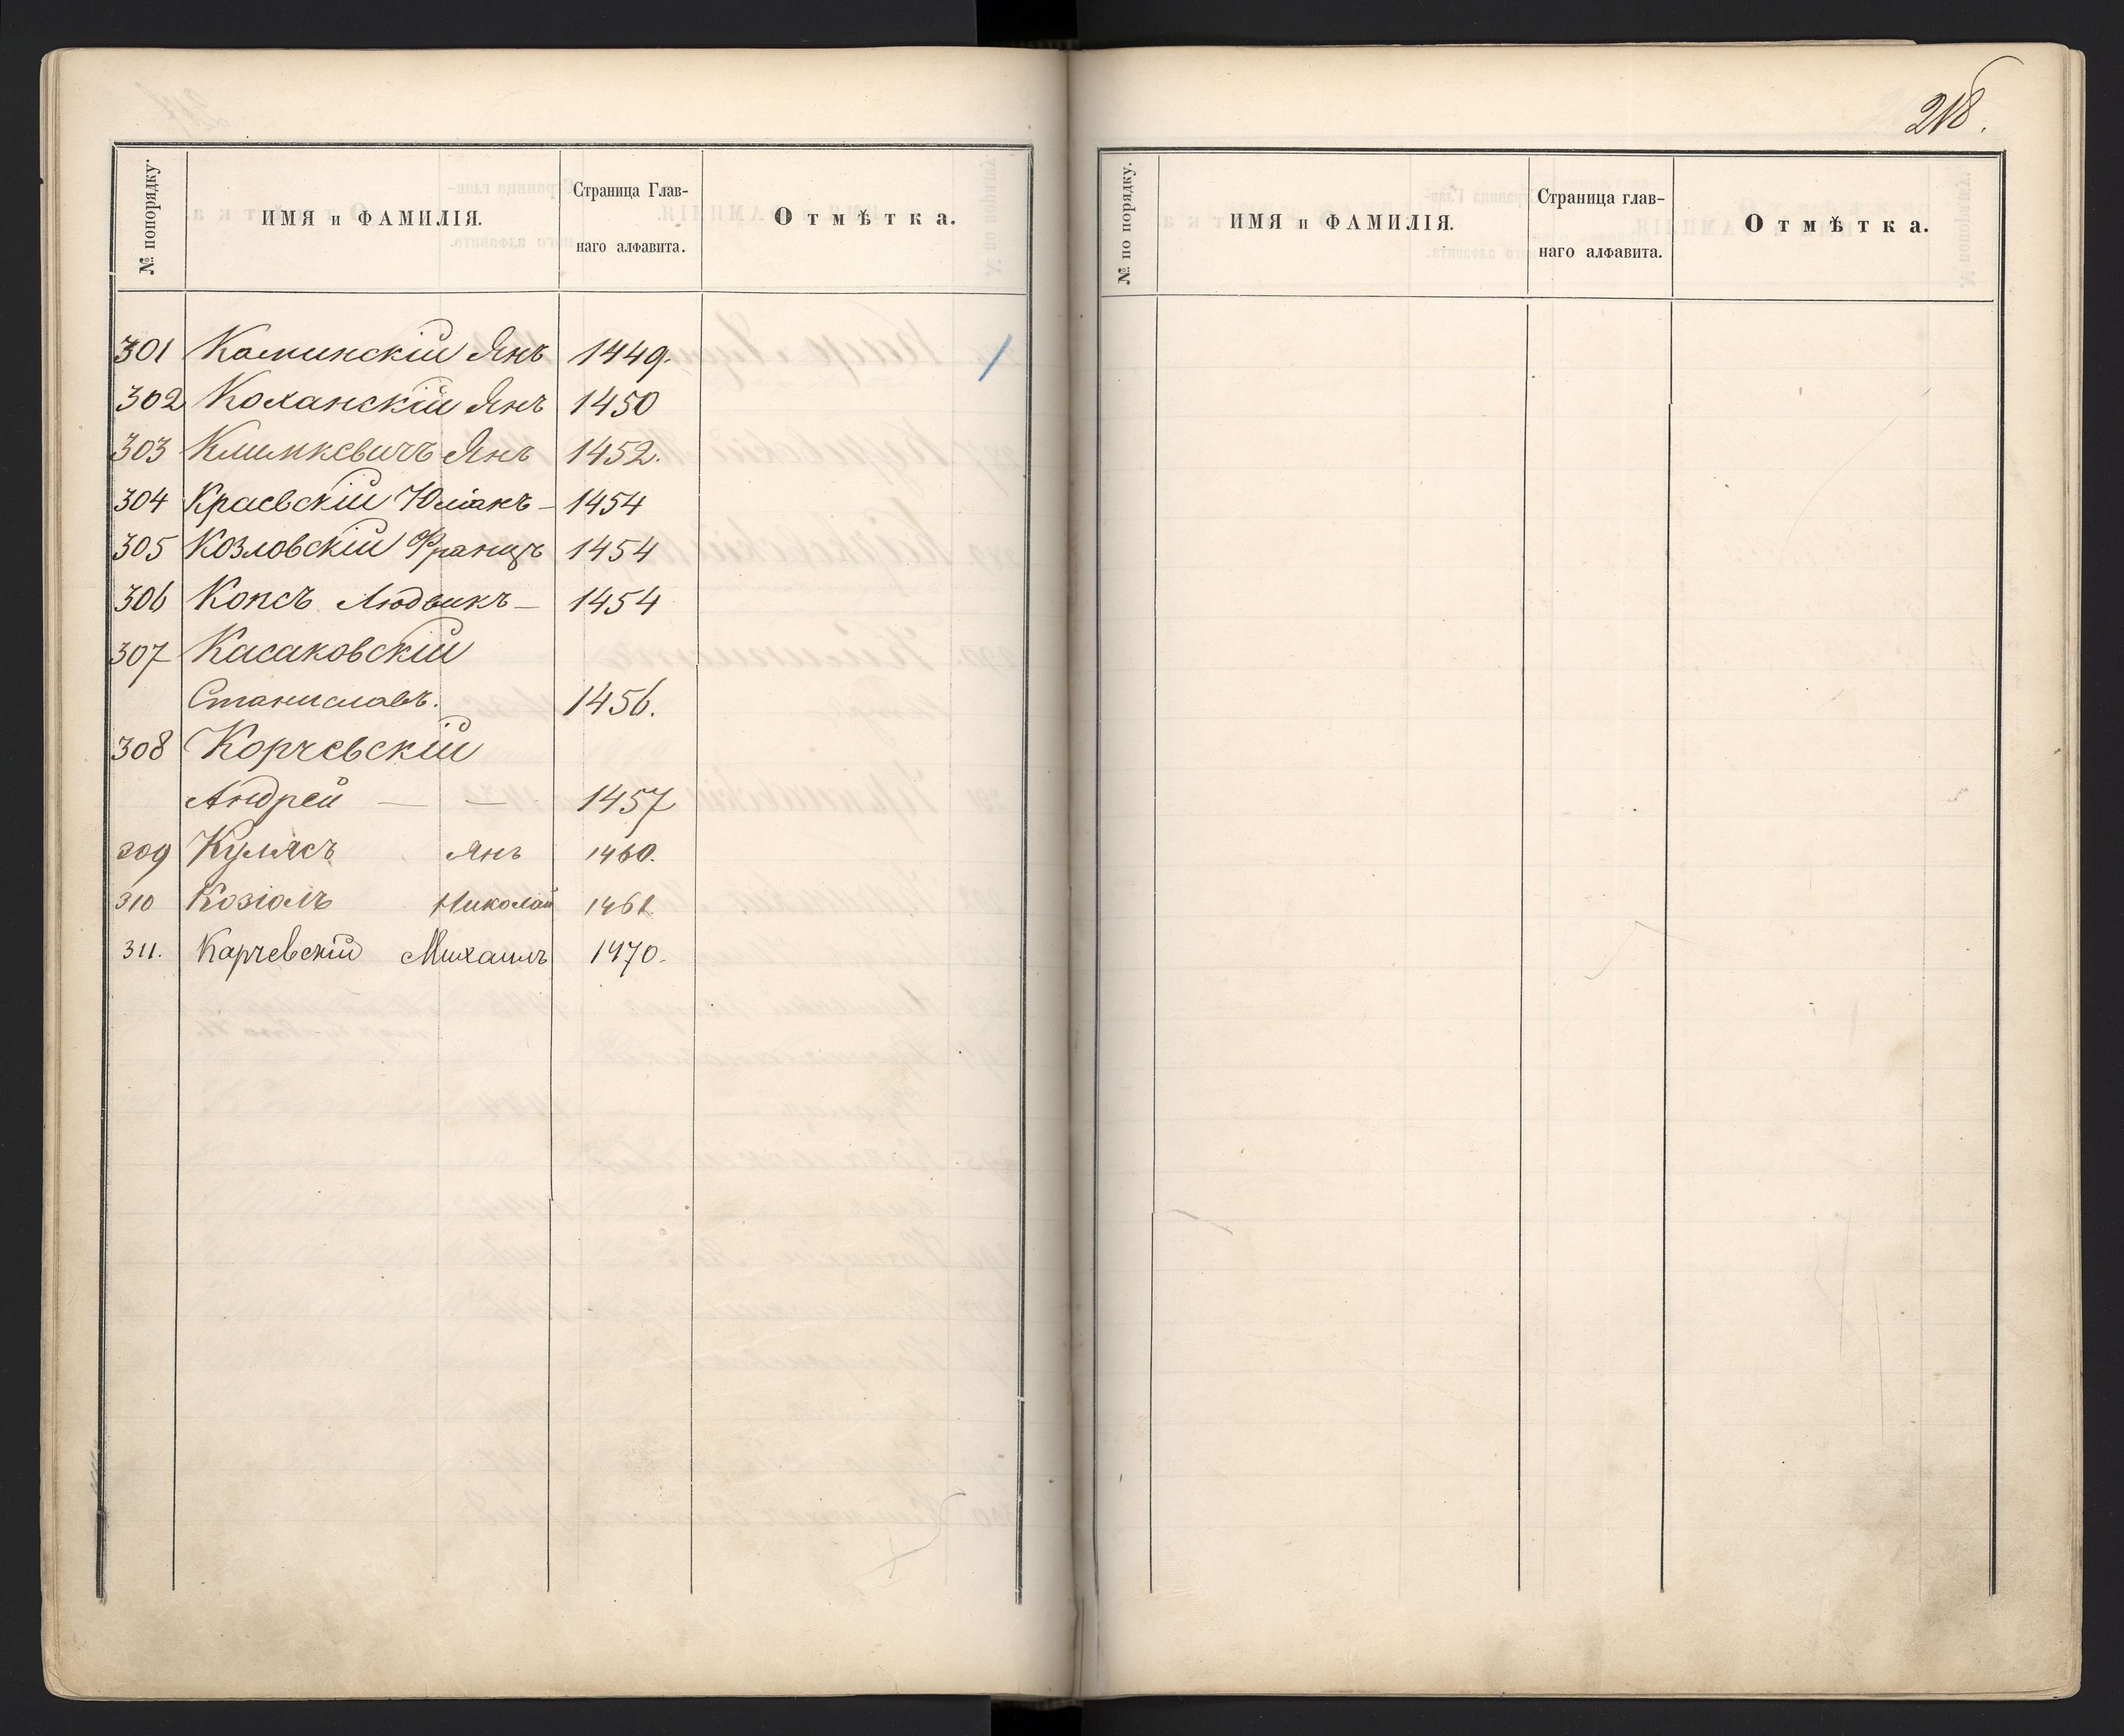 218.
№ попорядку.
ИМЯ и ФАМИЛІЯ.
Страница Глав-
наго алфавита.
Отмѣтка.
301 Каминскій Янъ 1449.
302 Коханскій Янъ 1450
303 Климкевичъ Янъ 1452.
304 Краевскій Юліанъ - 1454
305 Козловскій Францъ 1454
306 Копсъ Людвикъ - 1454
307 Касаковскій
Станиславъ. 1456.
308 Корчевскій
Андрей — — 1457
309 Янъ 1460.
310 Козіолъ Николай 1461
311. Карчевскій Михаилъ 1470.
№ по порядку.
ИМЯ и ФАМИЛІЯ.
Страница глав-
наго алфавита.
Отмѣтка.